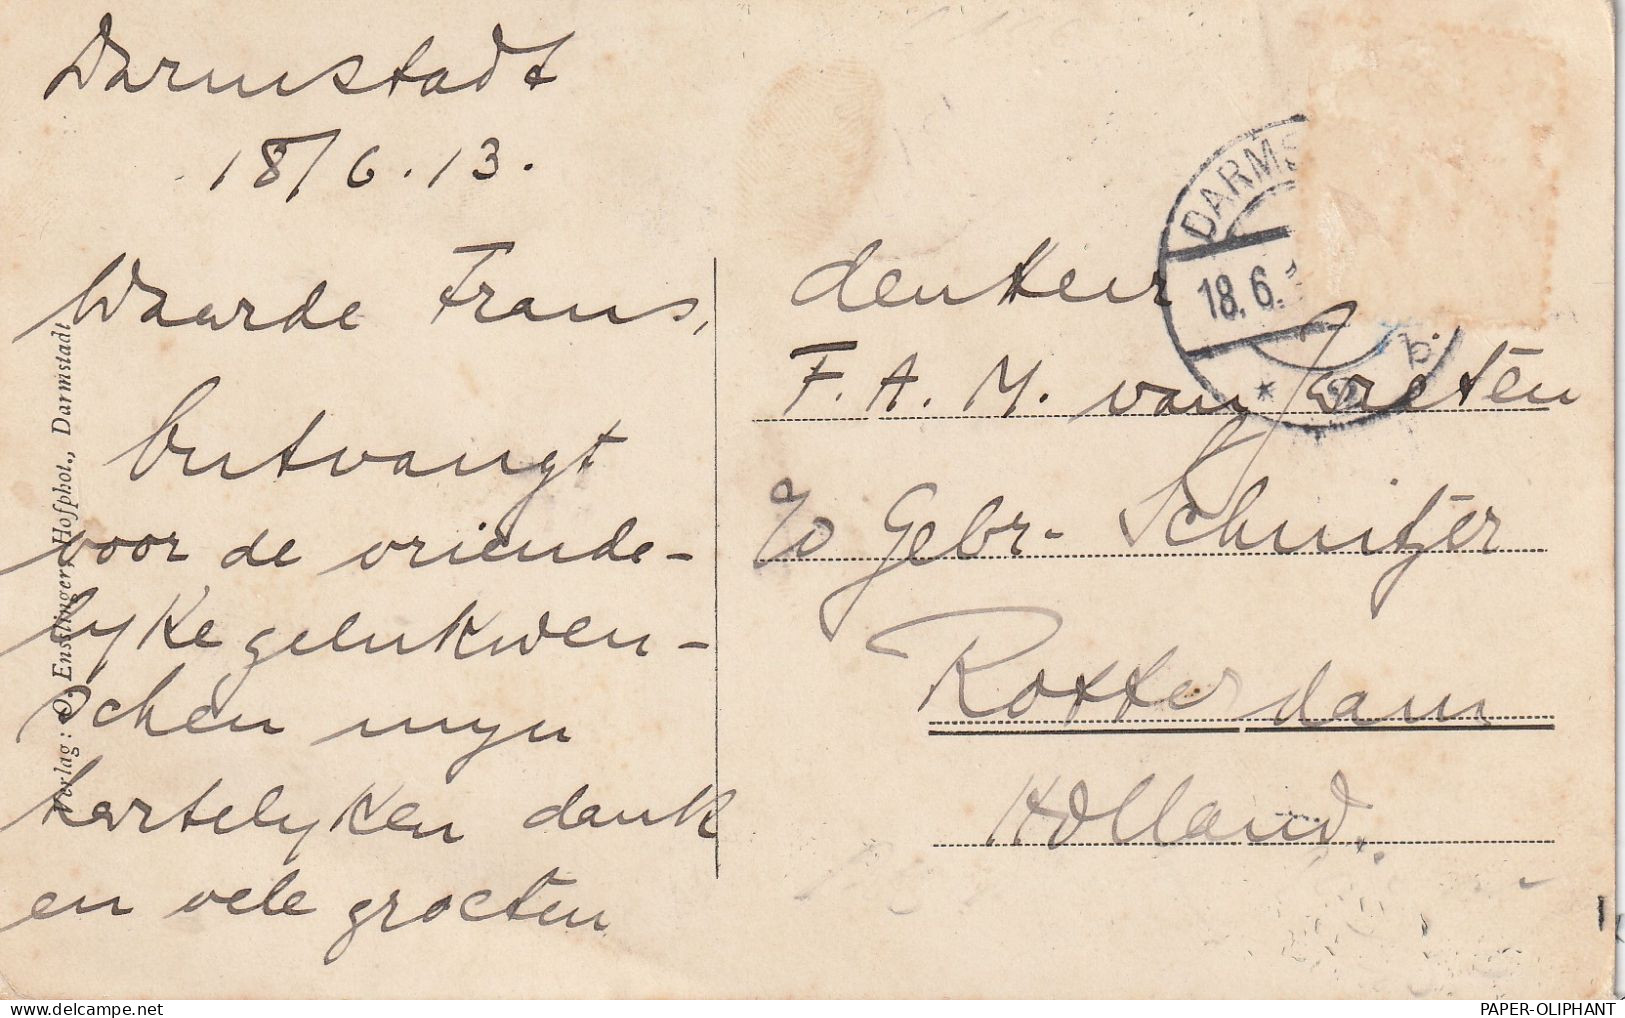 Darmstadt
18/6.13.
Waarde Frans,
Ontvangt
voor de vriende-
lyke gelukwen-
schen myn
hartelyken dank
en vele groeten
Verlag: O. Ensslinger, Hofphot., Darmstadt
DARMS
18.6.1
* 2 b.
den Heer
F. A. M. van
c/o Gebr. Schnitzer
Rotterdam
Holland.
PAPER-OLIPHANT